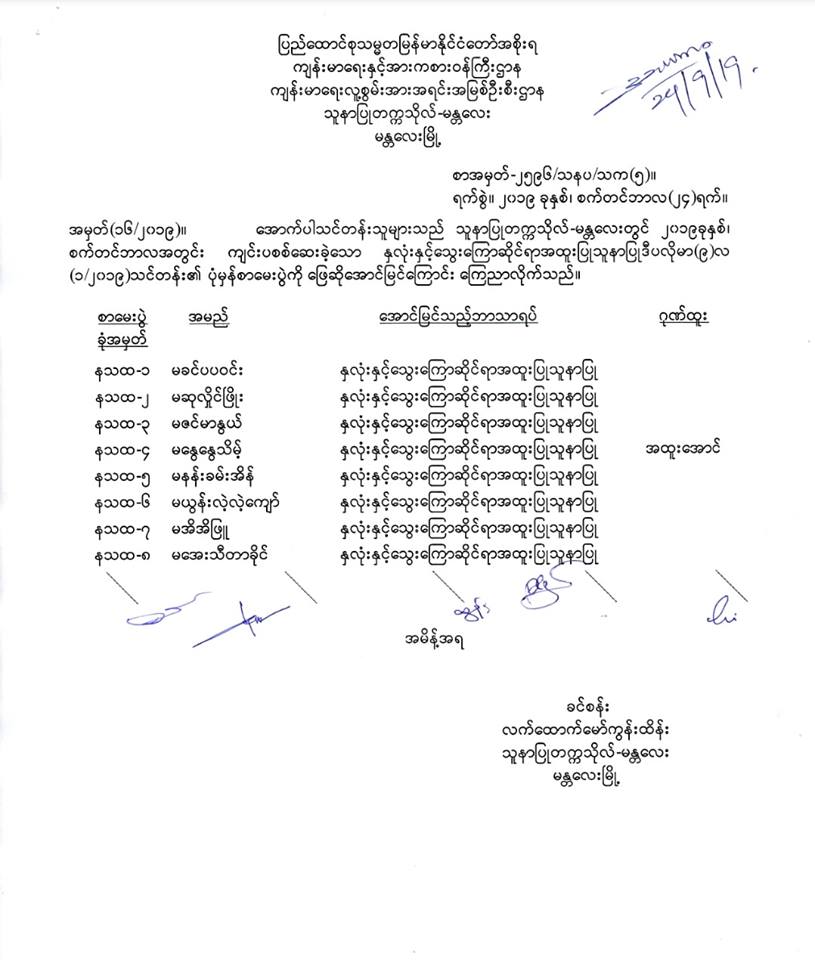 ပြည်ထောင်စုသမ္မတမြန်မာနိုင်ငံတော်အစိုးရ
ကျန်းမာရေးနှင့်အားကစားဝန်ကြီးဌာန
ကျန်းမာရေးလူ့စွမ်းအားအရင်းအမြစ်ဦးစီးဌာန
သူနာပြုတက္ကသိုလ်-မန္တလေး
မန္တလေးမြို့
24/9/19.
စာအမှတ်-၂၅၉၆/သနပ/သက(၅)။
ရက်စွဲ။ ၂၀၁၉ ခုနှစ်၊ စက်တင်ဘာလ(၂၄)ရက်။
အမှတ်(၁၆/၂၀၁၉)။ အောက်ပါသင်တန်းသူများသည် သူနာပြုတက္ကသိုလ်-မန္တလေးတွင် ၂၀၁၉ခုနှစ်၊
စက်တင်ဘာလအတွင်း ကျင်းပစစ်ဆေးခဲ့သော နှလုံးနှင့်သွေးကြောဆိုင်ရာအထူးပြုသူနာပြုဒီပလိုမာ(၉)လ
(၁/၂၀၁၉)သင်တန်း၏ ပုံမှန်စာမေးပွဲကို ဖြေဆိုအောင်မြင်ကြောင်း ကြေညာလိုက်သည်။
စာမေးပွဲ အမည် အောင်မြင်သည့်ဘာသာရပ် ဂုဏ်ထူး
ခုံအမှတ်
နသထ-၁ မခင်ပပဝင်း နှလုံးနှင့်သွေးကြောဆိုင်ရာအထူးပြုသူနာပြု
နသထ-၂ မဆုလှိုင်ဖြိုး နှလုံးနှင့်သွေးကြောဆိုင်ရာအထူးပြုသူနာပြု
နသထ-၃ မဇင်မာနွယ် နှလုံးနှင့်သွေးကြောဆိုင်ရာအထူးပြုသူနာပြု
နသထ-၄ မနွေနွေသိမ့် နှလုံးနှင့်သွေးကြောဆိုင်ရာအထူးပြုသူနာပြု အထူးအောင်
နသထ-၅ မနန်းခမ်းအိန် နှလုံးနှင့်သွေးကြောဆိုင်ရာအထူးပြုသူနာပြု
နသထ-၆ မယွန်းလဲ့လဲ့ကျော် နှလုံးနှင့်သွေးကြောဆိုင်ရာအထူးပြုသူနာပြု
နသထ-၇ မအိအိဖြူ နှလုံးနှင့်သွေးကြောဆိုင်ရာအထူးပြုသူနာပြု
နသထ-၈ မအေးသီတာခိုင် နှလုံးနှင့်သွေးကြောဆိုင်ရာအထူးပြုသူနာပြု
အမိန့်အရ
ခင်စန်း
လက်ထောက်မော်ကွန်းထိန်း
သူနာပြုတက္ကသိုလ်-မန္တလေး
မန္တလေးမြို့